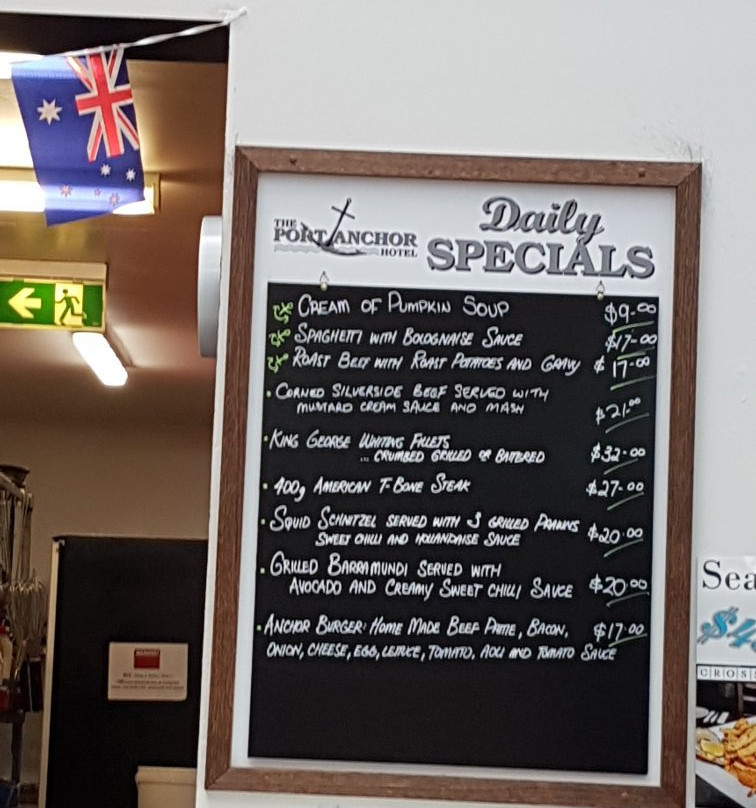 THE
PORT ANCHOR
HOTEL
Daily
SPECIALS
CREAM OF PUMPKIN SOUP $9.00
SPAGHETTI WITH BOLOGNAISE SAUCE $17.00
ROAST BEEF WITH ROAST POTATOES AND GRAVY $17.00
• CORNED SILVERSIDE BEEF SERVED WITH
MUSTARD CREAM SAUCE AND MASH $21.00
• KING GEORGE WHITING FILLETS
... CRUMBED GRILLED OR BATTERED $32.00
• 400g AMERICAN T-BONE STEAK $27.00
• SQUID SCHNITZEL SERVED WITH 3 GRILLED PRAWNS $20.00
SWEET CHILLI AND HOLLANDAISE SAUCE
• GRILLED BARRAMUNDI SERVED WITH
AVOCADO AND CREAMY SWEET CHILLI SAUCE $20.00
• ANCHOR BURGER: HOME MADE BEEF PATTIE, BACON, $17.00
ONION, CHEESE, EGG, LETTUCE, TOMATO, AOLI AND TOMATO SAUCE
Sea
CROSS